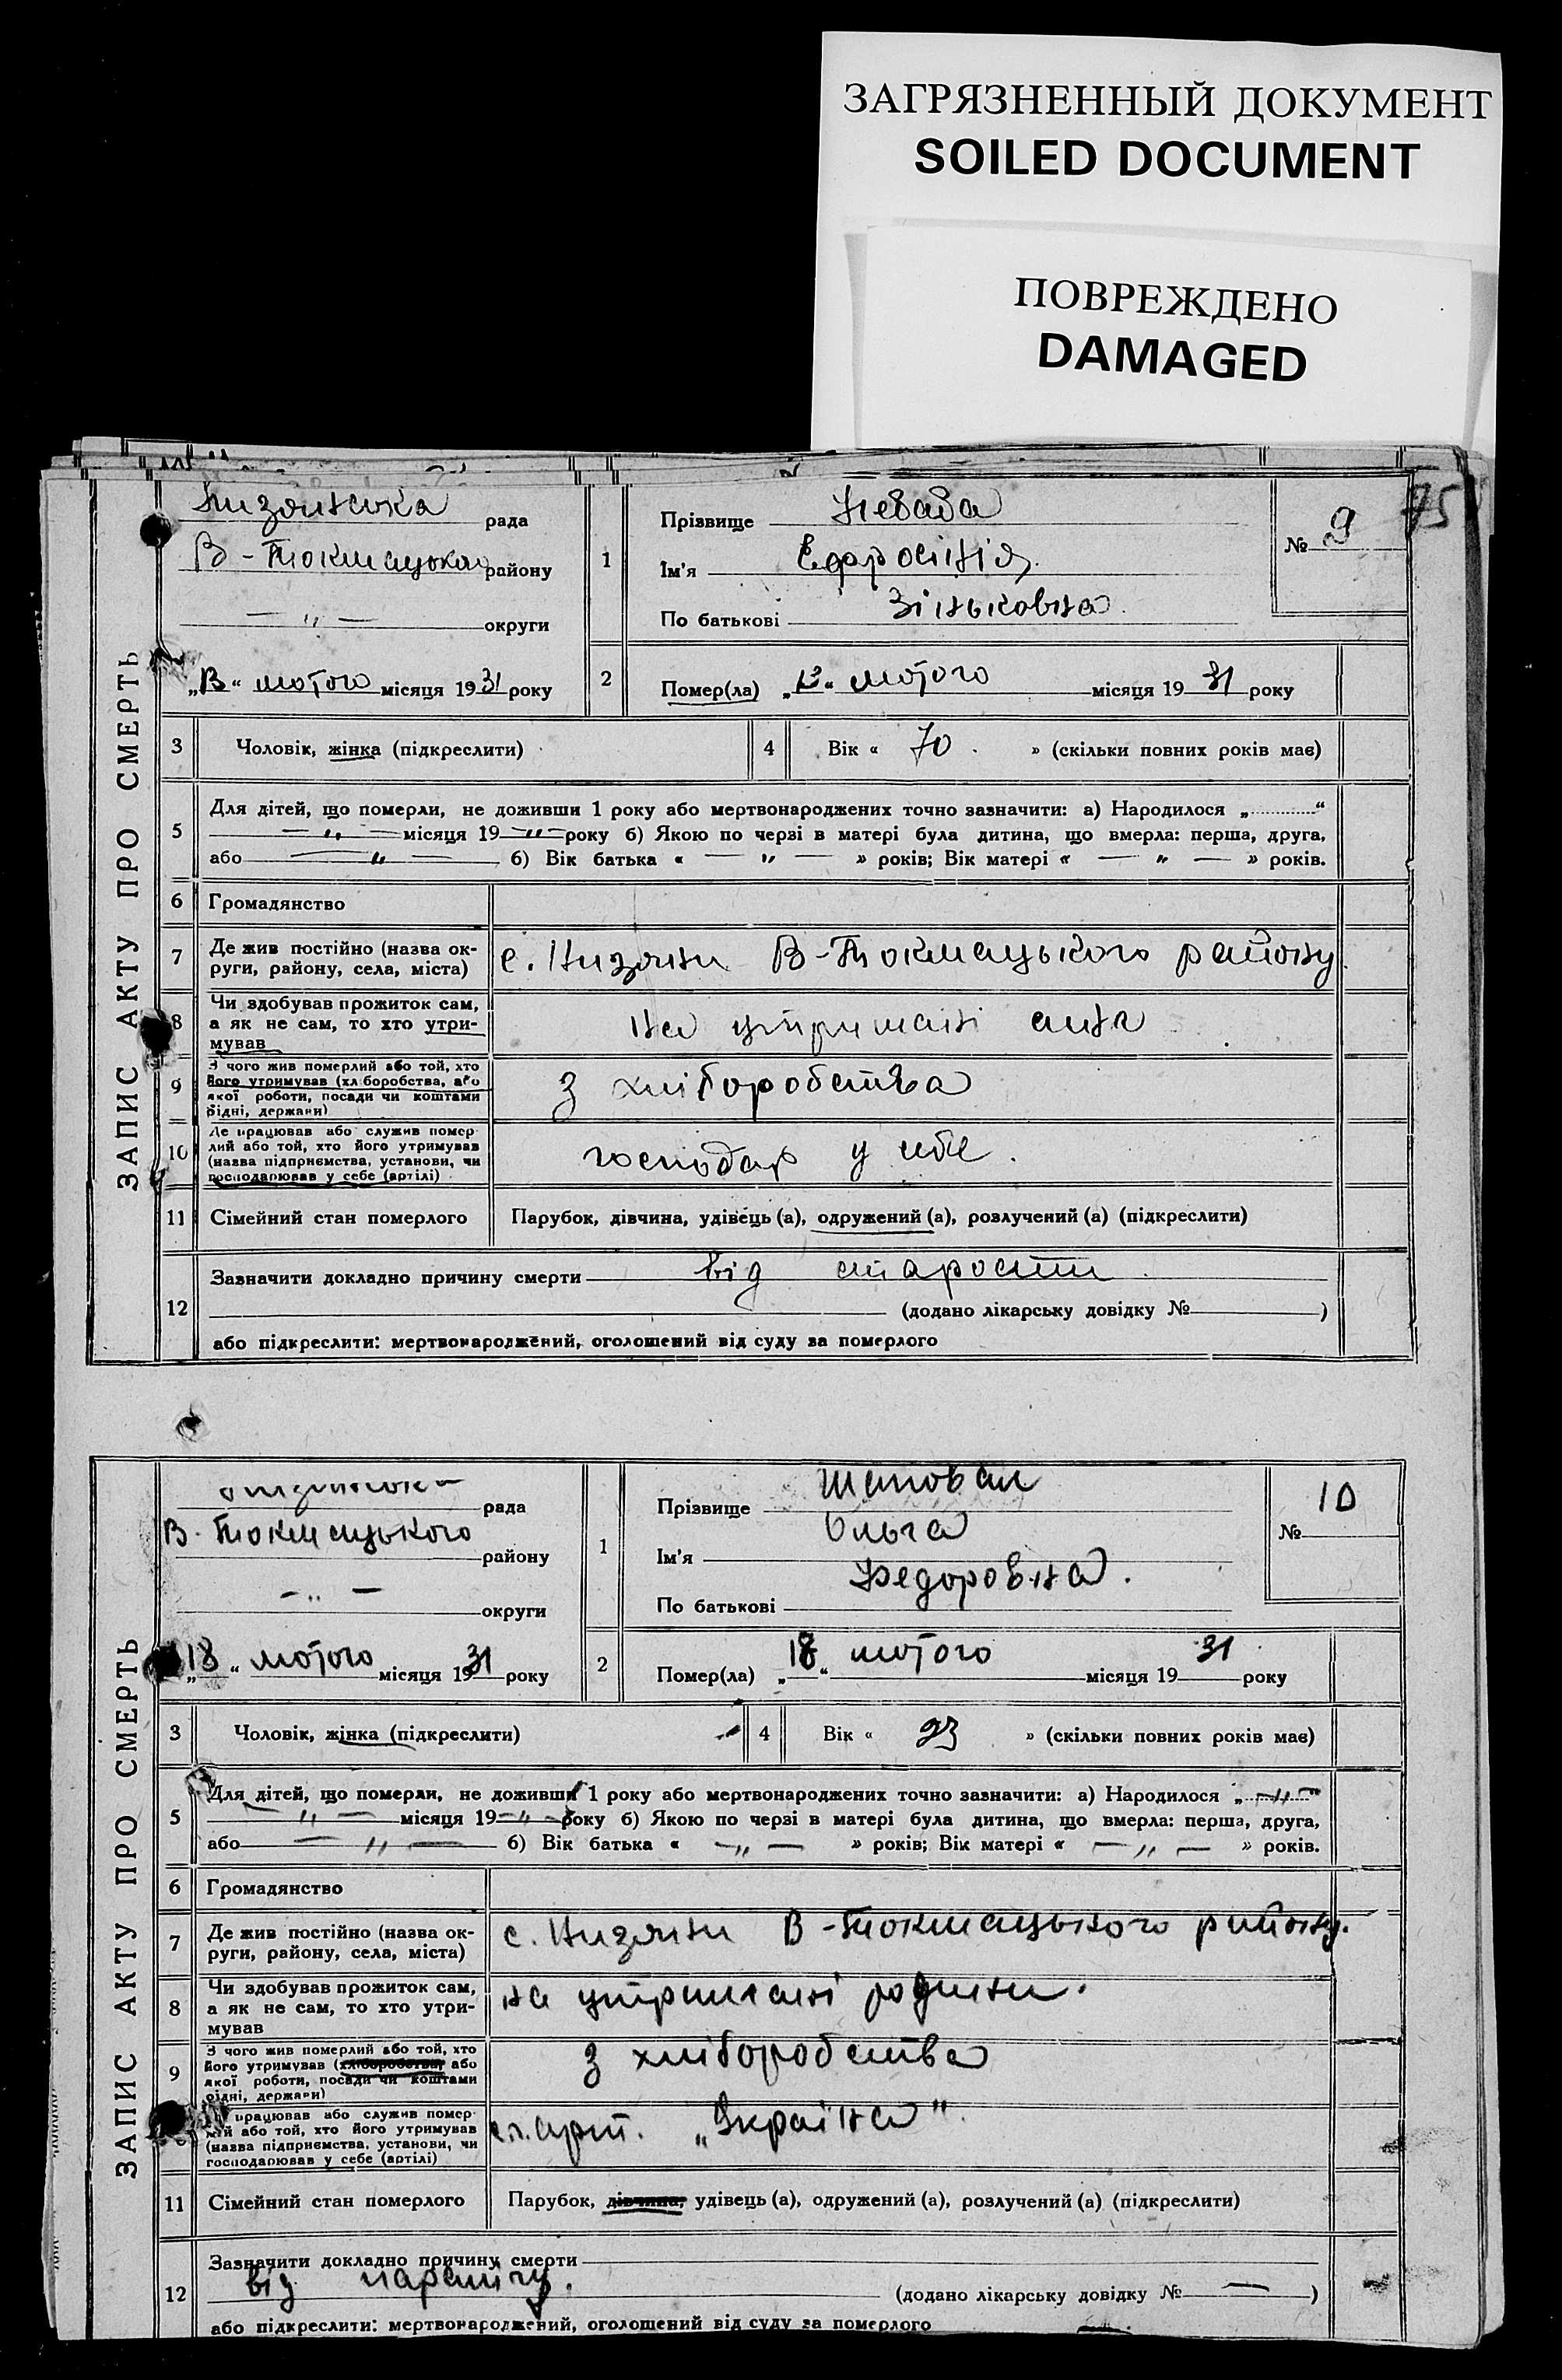 ЗАГРЯЗНЕННЫЙ ДОКУМЕНТ
SOILED DOCUMENT
ПОВРЕЖДЕНО
DAMAGED
75
ЗАПИС АКТУ ПРО СМЕРТЬ
Низянська рада
В-Токмацького району
— „ — округи
„13“ лютого місяця 1931 року
1
Прізвище Невада
Ім'я Ефросінія
По батькові Зіньковна
№ 9
2
Помер(ла) „13“ лютого місяця 1931 року
3 Чоловік, жінка (підкреслити)
4 Вік « 70 » (скільки повних років має)
5 Для дітей, що померли, не доживши 1 року або мертвонароджених точно зазначити: а) Народилося „ “
— „ — місяця 19 — „ — року б) Якою по черзі в матері була дитина, що вмерла: перша, друга,
або — „ — б) Вік батька « — „ — » років; Вік матері « — „ — » років.
6 Громадянство
7 Де жив постійно (назва ок-
руги, району, села, міста)
с. Низяни В-Токмацького району
8 Чи здобував прожиток сам,
а як не сам, то хто утри-
мував
на утримані сина
9 З чого жив померлий або той, хто
його утримував (хліборобства, або
якої роботи, посади чи коштами
рідні, держави)
з хліборобства
10 Де працював або служив помер-
лий або той, хто його утримував
(назва підприємства, установи, чи
господарював у себе (артілі)
господар у себе.
11 Сімейний стан померлого
Парубок, дівчина, удівець (а), одружений (а), розлучений (а) (підкреслити)
12 Зазначити докладно причину смерти від старости
(додано лікарську довідку № )
або підкреслити: мертвонароджений, оголошений від суду за померлого
ЗАПИС АКТУ ПРО СМЕРТЬ
Низянська рада
В-Токмацького району
— „ — округи
„18“ лютого місяця 1931 року
1
Прізвище Шаповал
Ім'я Ольга
По батькові Федоровна.
№ 10
2
Помер(ла) „18“ лютого місяця 1931 року
3 Чоловік, жінка (підкреслити)
4 Вік « 23 » (скільки повних років має)
5 Для дітей, що померли, не доживши 1 року або мертвонароджених точно зазначити: а) Народилося „ — „ — “
— „ — місяця 19 — „ — року б) Якою по черзі в матері була дитина, що вмерла: перша, друга,
або — „ — б) Вік батька « — „ — » років; Вік матері « — „ — » років.
6 Громадянство
7 Де жив постійно (назва ок-
руги, району, села, міста)
с. Низяни В-Токмацького району.
8 Чи здобував прожиток сам,
а як не сам, то хто утри-
мував
на утримані родини.
9 З чого жив померлий або той, хто
його утримував (хліборобства, або
якої роботи, посади чи коштами
рідні, держави)
з хліборобства
працював або служив помер-
лий або той, хто його утримував
(назва підприємства, установи, чи
господарював у себе (артілі)
с.г. арт. „Україна“.
11 Сімейний стан померлого
Парубок, дівчина, удівець (а), одружений (а), розлучений (а) (підкреслити)
12 Зазначити докладно причину смерти
від паралічу. (додано лікарську довідку № — )
або підкреслити: мертвонароджений, оголошений від суду за померлого